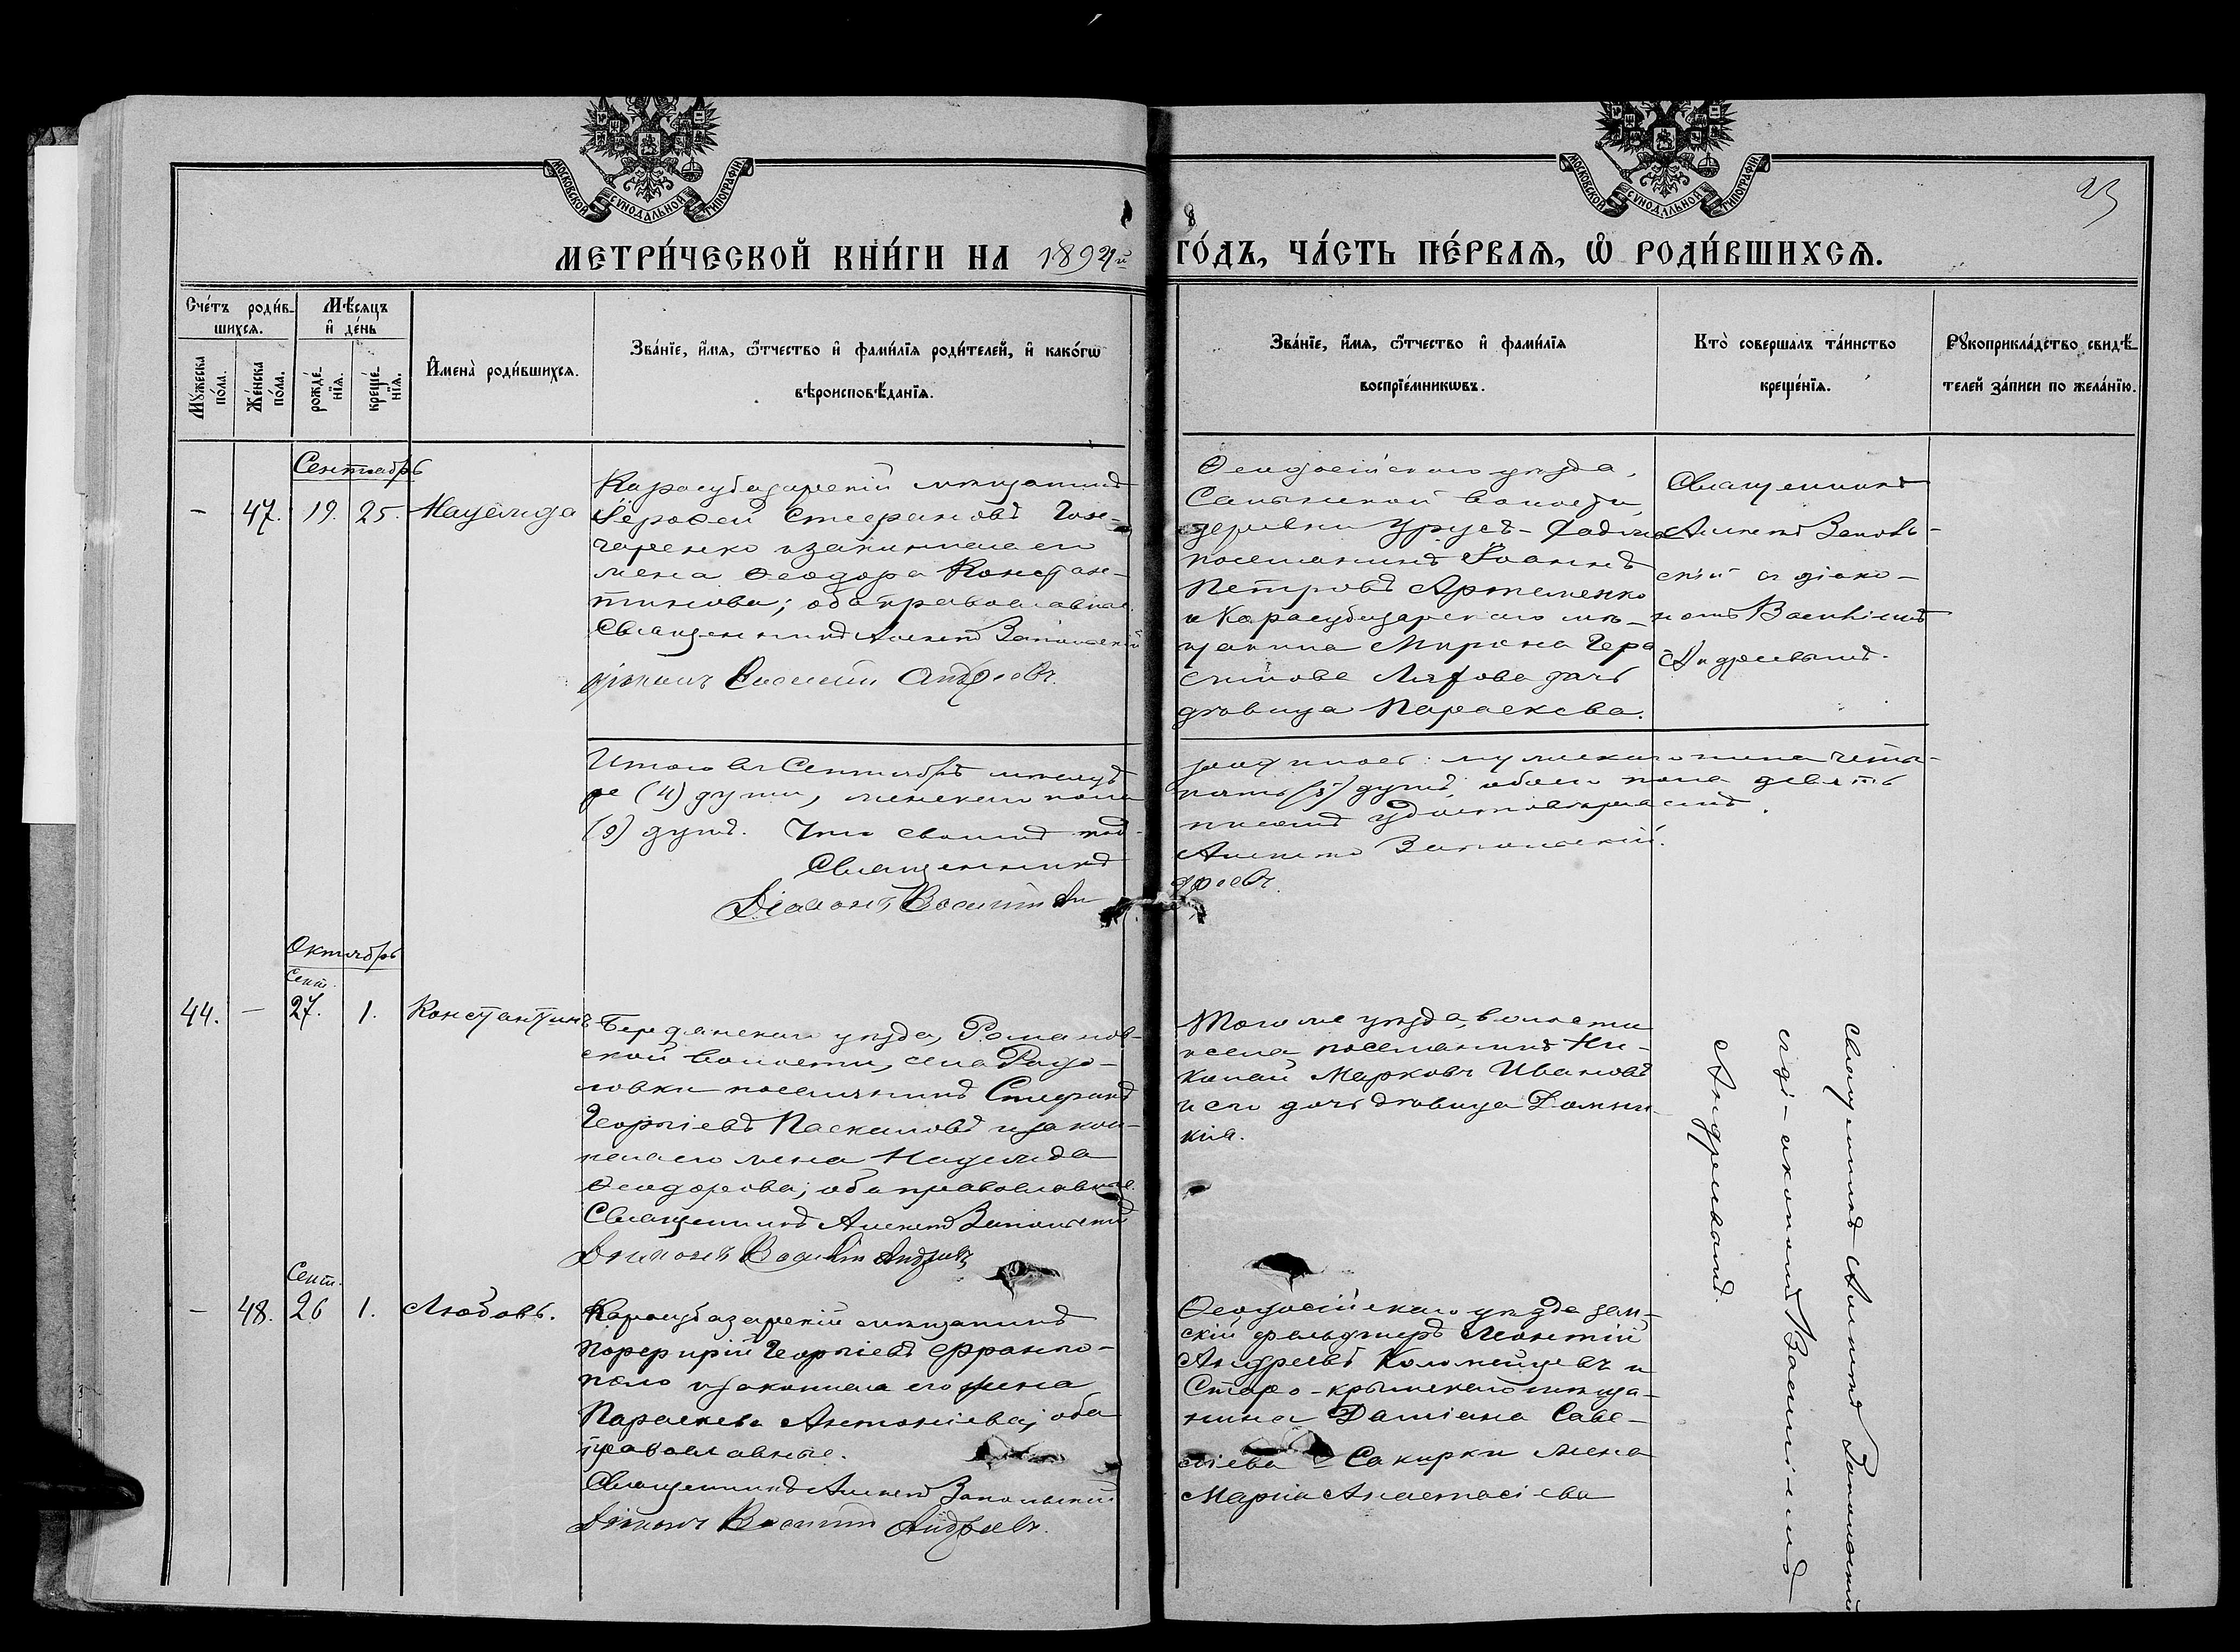 МОСКОВСКОЙ СѴНОДАЛЬНОЙ ТИПОГРАФІИ
МОСКОВСКОЙ СѴНОДАЛЬНОЙ ТИПОГРАФІИ
23
МЕТРИ́ЧЕСКОЙ КНИ́ГИ НА 1892й ГО́ДЪ, ЧА́СТЬ ПЕ́РВАѦ, Ѡ РОДИ́ВШИХСѦ.
Сче́тъ роди́в-
шихсѧ.
Мꙋ́жеска по́ла.
Же́нска по́ла.
Мѣ́сѧцъ
и҆ де́нь
рожде́нїѧ.
креще́нїѧ.
И҆мена̀ роди́вшихсѧ.
Зва́нїе, и҆́мѧ, ѻ҆́тчество и҆ фами́лїѧ роди́телей, и҆ како́гѡ
вѣроисповѣ́данїѧ.
Зва́нїе, и҆́мѧ, ѻ҆́тчество и҆ фами́лїѧ
воспрїе́мникѡвъ.
Кто̀ совершалъ та́инство
креще́нїѧ.
Рꙋкоприкла́дство свидѣ́-
телей за́писи по жела́нїю.
Сентябрь
- 47. 19. 25. Надежда
Карасубазарскій мѣщанинъ
Іеросей Стефановъ Гон-
чаренко и законная его
жена Ѳеодора Констан-
тинова; оба православные.
Священникъ Алексѣй Запольскій
діаконъ Василій Андреевъ.
Ѳеодосійскаго уѣзда,
Салынской волости,
деревни Урусъ-
поселянинъ Іоаннъ
Петровъ Артеменко
и Карасубазарскаго мѣ-
щанина Мирона Гера
симова дочь
дѣвица Параскева.
Священникъ
Алексѣй Заполь-
скій съ діако-
номъ Василіемъ
Андреевымъ.
Итого въ Сентябрѣ мѣсяцѣ родилось: мужескаго пола четы-
ре (4) души, женскаго пола пять (5) душъ, обоего пола девять
(9) душъ. Что своимъ под- писомъ удостовѣряемъ.
Священникъ Алексѣй Запольскій.
Діаконъ Василій Андреевъ.
Октябрь
Сент.
44. - 27. 1. Константинъ
Бердянскаго уѣзда, Романов-
ской волости, села
поселянинъ Стефанъ
Георгіевъ Паскаловъ и закон-
ная его жена Надежда
Ѳеодорова; оба православные.
Священникъ Алексѣй Запольскій
Діаконъ Василій Андреевъ
Того же уѣзда, волости
и села поселянинъ Ни-
колай Марковъ Ивановъ
и его дочь дѣвица Домни-
кія.
Священникъ Алексѣй Запольскій
съ ді-акономъ Василіемъ
Андреевымъ.
Сент.
- 48. 26 1. Любовь.
Карасубазарскій мѣщанинъ
Порфирій Георгіевъ Франго-
пуло и законная его жена
Параскева Антоніева; оба
православные.
Священникъ Алексѣй Запольскій
Діаконъ Василій Андреевъ.
Ѳеодосійскаго уѣзда зем-
скій фельдшеръ Леонтій
Андреевъ Коломейцевъ и
Старо-крымскаго мѣща-
нина Даміана Саве-
ліева Сакирки жена
Марія Анастасіева